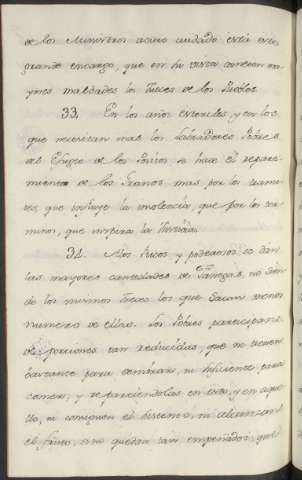 de los Ministros a cuio cuidado está este
grande encargo, que en su vista cometen ma-
yores maldades los Jueces de los Pueblos.
33. En los años esteriles, y en los
que necesitan mas los Labradores Pobres
del de los Positos se hace el reparti-
miento de los Granos mas por los trami-
tes, que influye la violencia, que por los ter-
minos, que inspira la Justicia.
34. A los Ricos, y poderosos se dán
las mayores cantidades de fanegas, no sien-
do de los mismos Jueces los que sacan menor
numero de ellas. Los Pobres participan
de porciones tan reducidas, que ni tienen
bastante para sembrar, ni suficiente para
comer, y repartiendolas en esto, y en aque-
llo, ni consiguen el descanso, ni alcanzan
el fruto, sino quedan tan empeñados, que